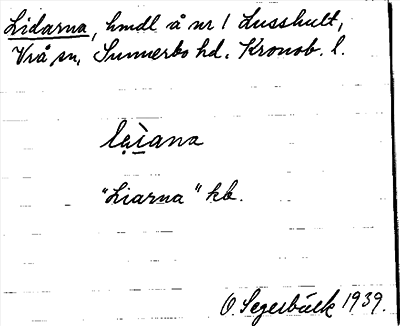 Lidarna, hmdl å nr 1 Lusshult,
Vrå sn, Sunnerbo hd. Kronob. l.
la̤ìana
"Liarna" kb.
O. Segerbäck 1939.